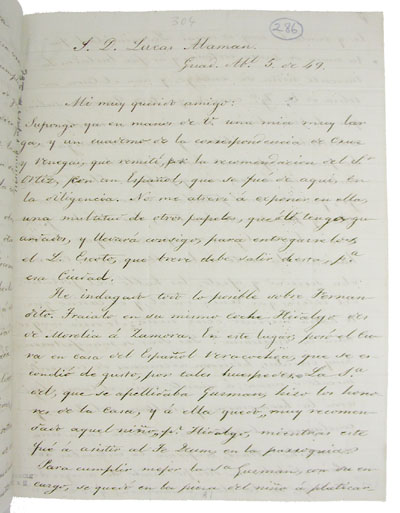 304
286
S. D. Lucas Alaman.
Guad. Ab.l 5. de 49.
Mi muy querido amigo:
Supongo que en manos de V. una mia muy lar-
ga, y un cuaderno de la correspondencia de Cruz
Venegas, que remití, pr. la recomendacion del Sr.
Ortiz, con un Español, que se fué de aquí, en
la diligencia. No me atreví á exponer en ella,
una multitud de otros papeles, que le tengo gu
ardados, y llevará consigo, para entregarselos,
el L. Escoto, que breve debe salir de esta, pa.
esa Ciudad.
He indagado todo lo posible sobre Fernan-
dito. Trajolo en su mismo coche Hidalgo des
de Morelia á Zamora. En este lugar, posó el Cu
ra en casa del Español Veracochea, que se es-
condió de gusto, por tales huespedes. La Sa.
del, que se apellidaba Guzman, hizo los hono-
res de la casa, y á ella quedó, muy recomen-
dado aquel niño, pr. Hidalgo, mientras este
fué á asistir al Te Deum, en la parroquia.
Para cumplir mejor la Sa. Guzman, con su en-
cargo, se quedó en la pieza del niño á platicar